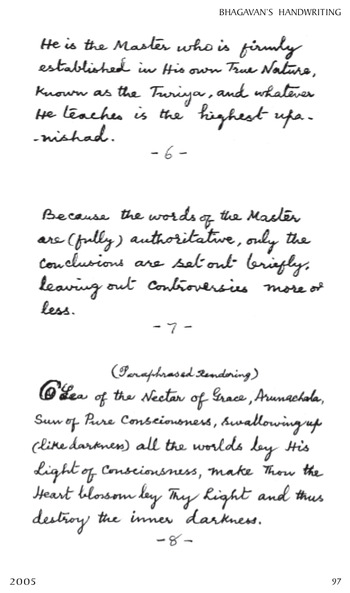 BHAGAVAN'S HANDWRITING
He is the Master who is firmly
established in His own True Nature,
known as the Turiya, and whatever
He teaches is the highest upa-
-nishad.
- 6 -
Because the words of the Master
are (fully) authoritative, only the
conclusions are set out briefly,
leaving out controversies more or
less.
- 7 -
(Paraphrased Rendering)
O Sea of the Nectar of Grace, Arunachala,
Sun of Pure Consciousness, swallowing up
(like darkness) all the worlds by His
Light of Consciousness, make Thou the
Heart blossom by Thy Light and thus
destroy the inner darkness.
- 8 -
2005
97